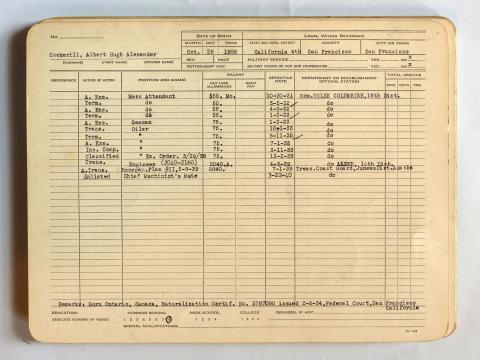 No.
DATE OF BIRTH LEGAL VOTING RESIDENCE
MONTH DAY YEAR STATE AND CONG. DISTRICT COUNTY CITY OR TOWN
Cockerill, Albert Hugh Alexander Oct. 29 1908 California 4th San Francisco San Francisco
(SURNAME) (FIRST NAME) (SECOND NAME) SEX RACE MILITARY SERVICE YES NO X
RETIREMENT AGE YES NO X
REFERENCE NATURE OF ACTION POSITION AND GRADE SALARY EFFECTIVE DATE DEPARTMENT OR ESTABLISHMENT OFFICIAL STATION TOTAL SERVICE
PAY LESS ALLOWANCES BASE PAY
A. Exc. Mess Attendant $55. Mo. 10-20-31 Com. 18th Dist.
Term. do 55. do
A. Exc. do 55. do
Term. do 55. do
A. Exc. Seaman 75. do
Trans. Oiler 75. do
Term. " 75. do
A. Exc. " 75. 7-1-35 do
Inc. Comp. " 75. 3-11-38 do
Classified " Ex. Order. 3/29/38 75. do
Trans. Engineer (2040-2160) 2040.A. do
A.Trans. Reorgan.Plan #II,5-9-39 2040. 7-1-39 Treas.Coast Guard,Juneau Dist.Alaska
Enlisted Chief Machinist's Mate 3-22-40 do
Remarks: Born Ontario, Canada, Naturalization Certif. No. 3787080 issued 2-5-34, Federal Court, San Francisco
California
EDUCATION: COMMON SCHOOL HIGH SCHOOL COLLEGE DEGREES, IF ANY
(INDICATE NUMBER OF YEARS) 1 2 3 4 5 6 7 8 1 2 3 4 1 2 3 4
SPECIAL QUALIFICATIONS